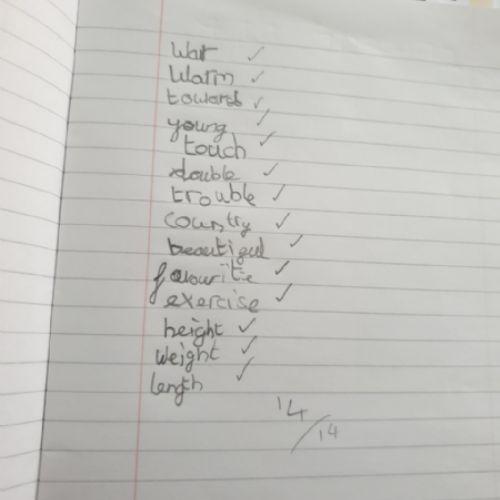 War ✓
Warm ✓
towards ✓
young ✓
touch ✓
double ✓
trouble ✓
country ✓
beautiful ✓
favourite ✓
exercise ✓
height ✓
weight ✓
length ✓
14/14